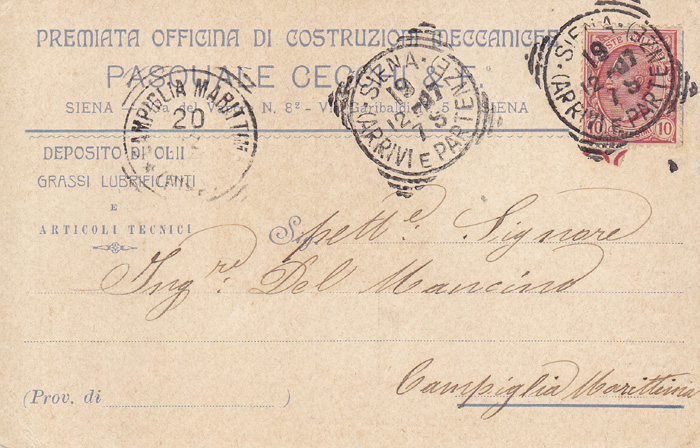 PREMIATA OFFICINA DI COSTRUZIONI MECCANICHE
PASQUALE & F.
SIENA - Via del N. 8º - Via Garibaldi 5 SIENA
DEPOSITO DI OLII
GRASSI LUBRIFICANTI
E
ARTICOLI TECNICI
CAMPIGLIA MARITTIMA
20
SIENA
19
12 - 07
7 S
(ARRIVI E PARTENZE)
SIENA
19
12 - 07
7 S
(ARRIVI E PARTENZE)
POSTE
10 10
Spett.e Signore
Ing.re Del Mancino
Campiglia Marittima
(Prov. di )